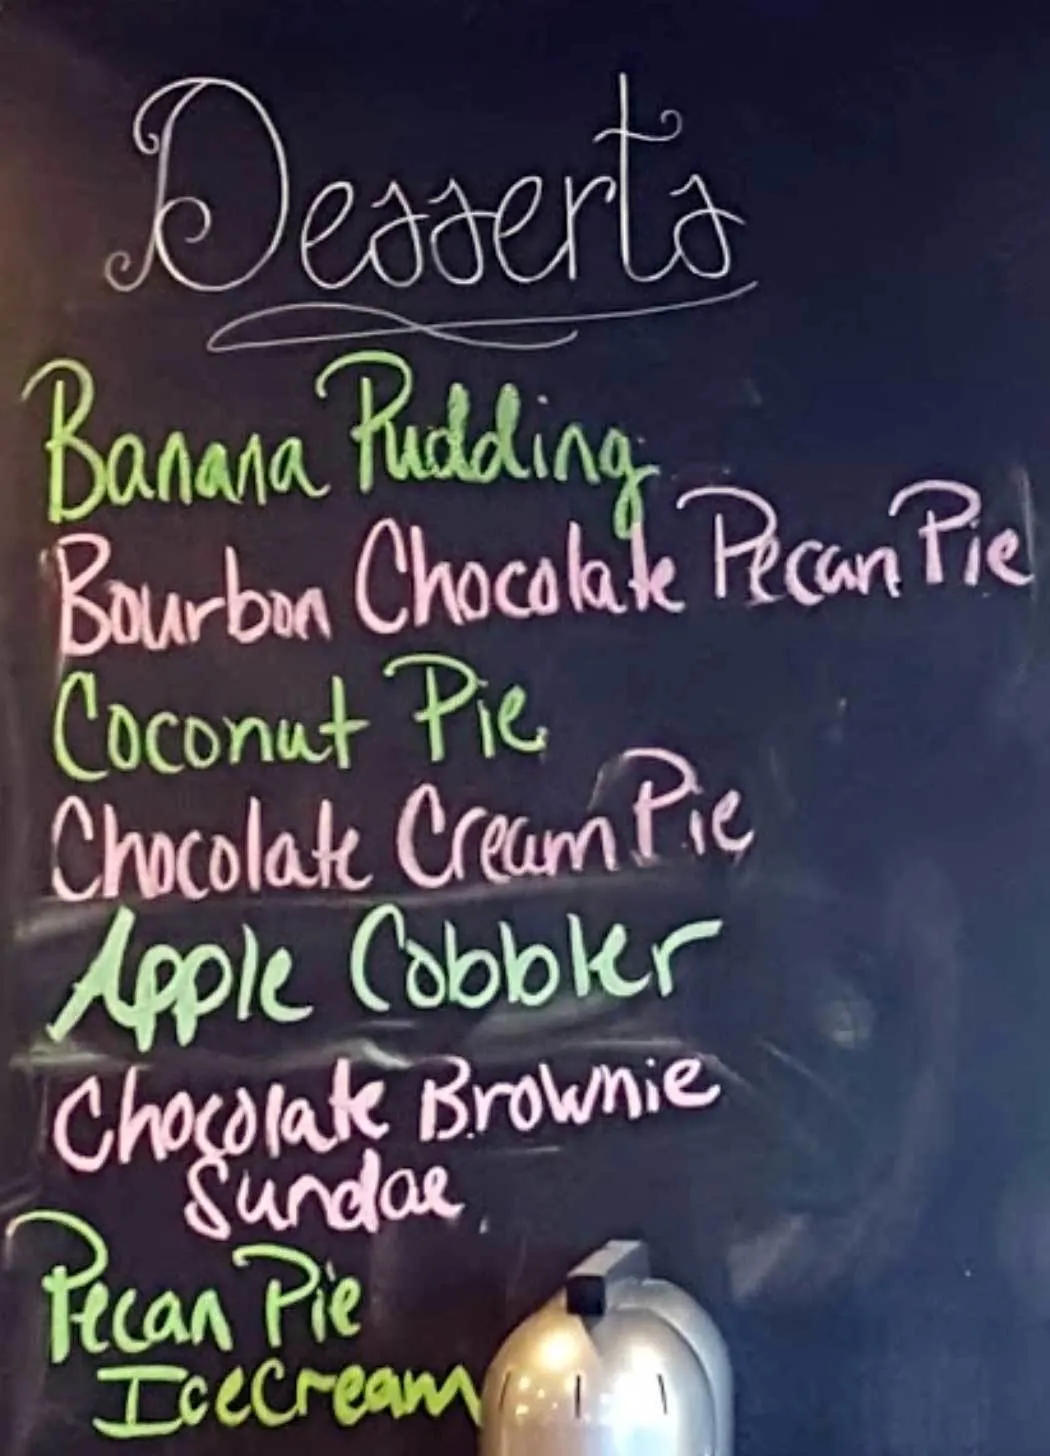 Desserts
Banana Pudding
Bourbon Chocolate Pecan Pie
Coconut Pie
Chocolate Cream Pie
Apple Cobbler
Chocolate Brownie
Sundae
Pecan Pie
IceCream